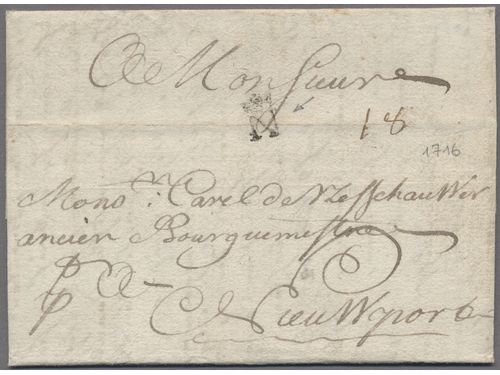 A Monsieur
18
1716
Mons.r Carel de
ancien Bourguemestre
A
Nieuwport